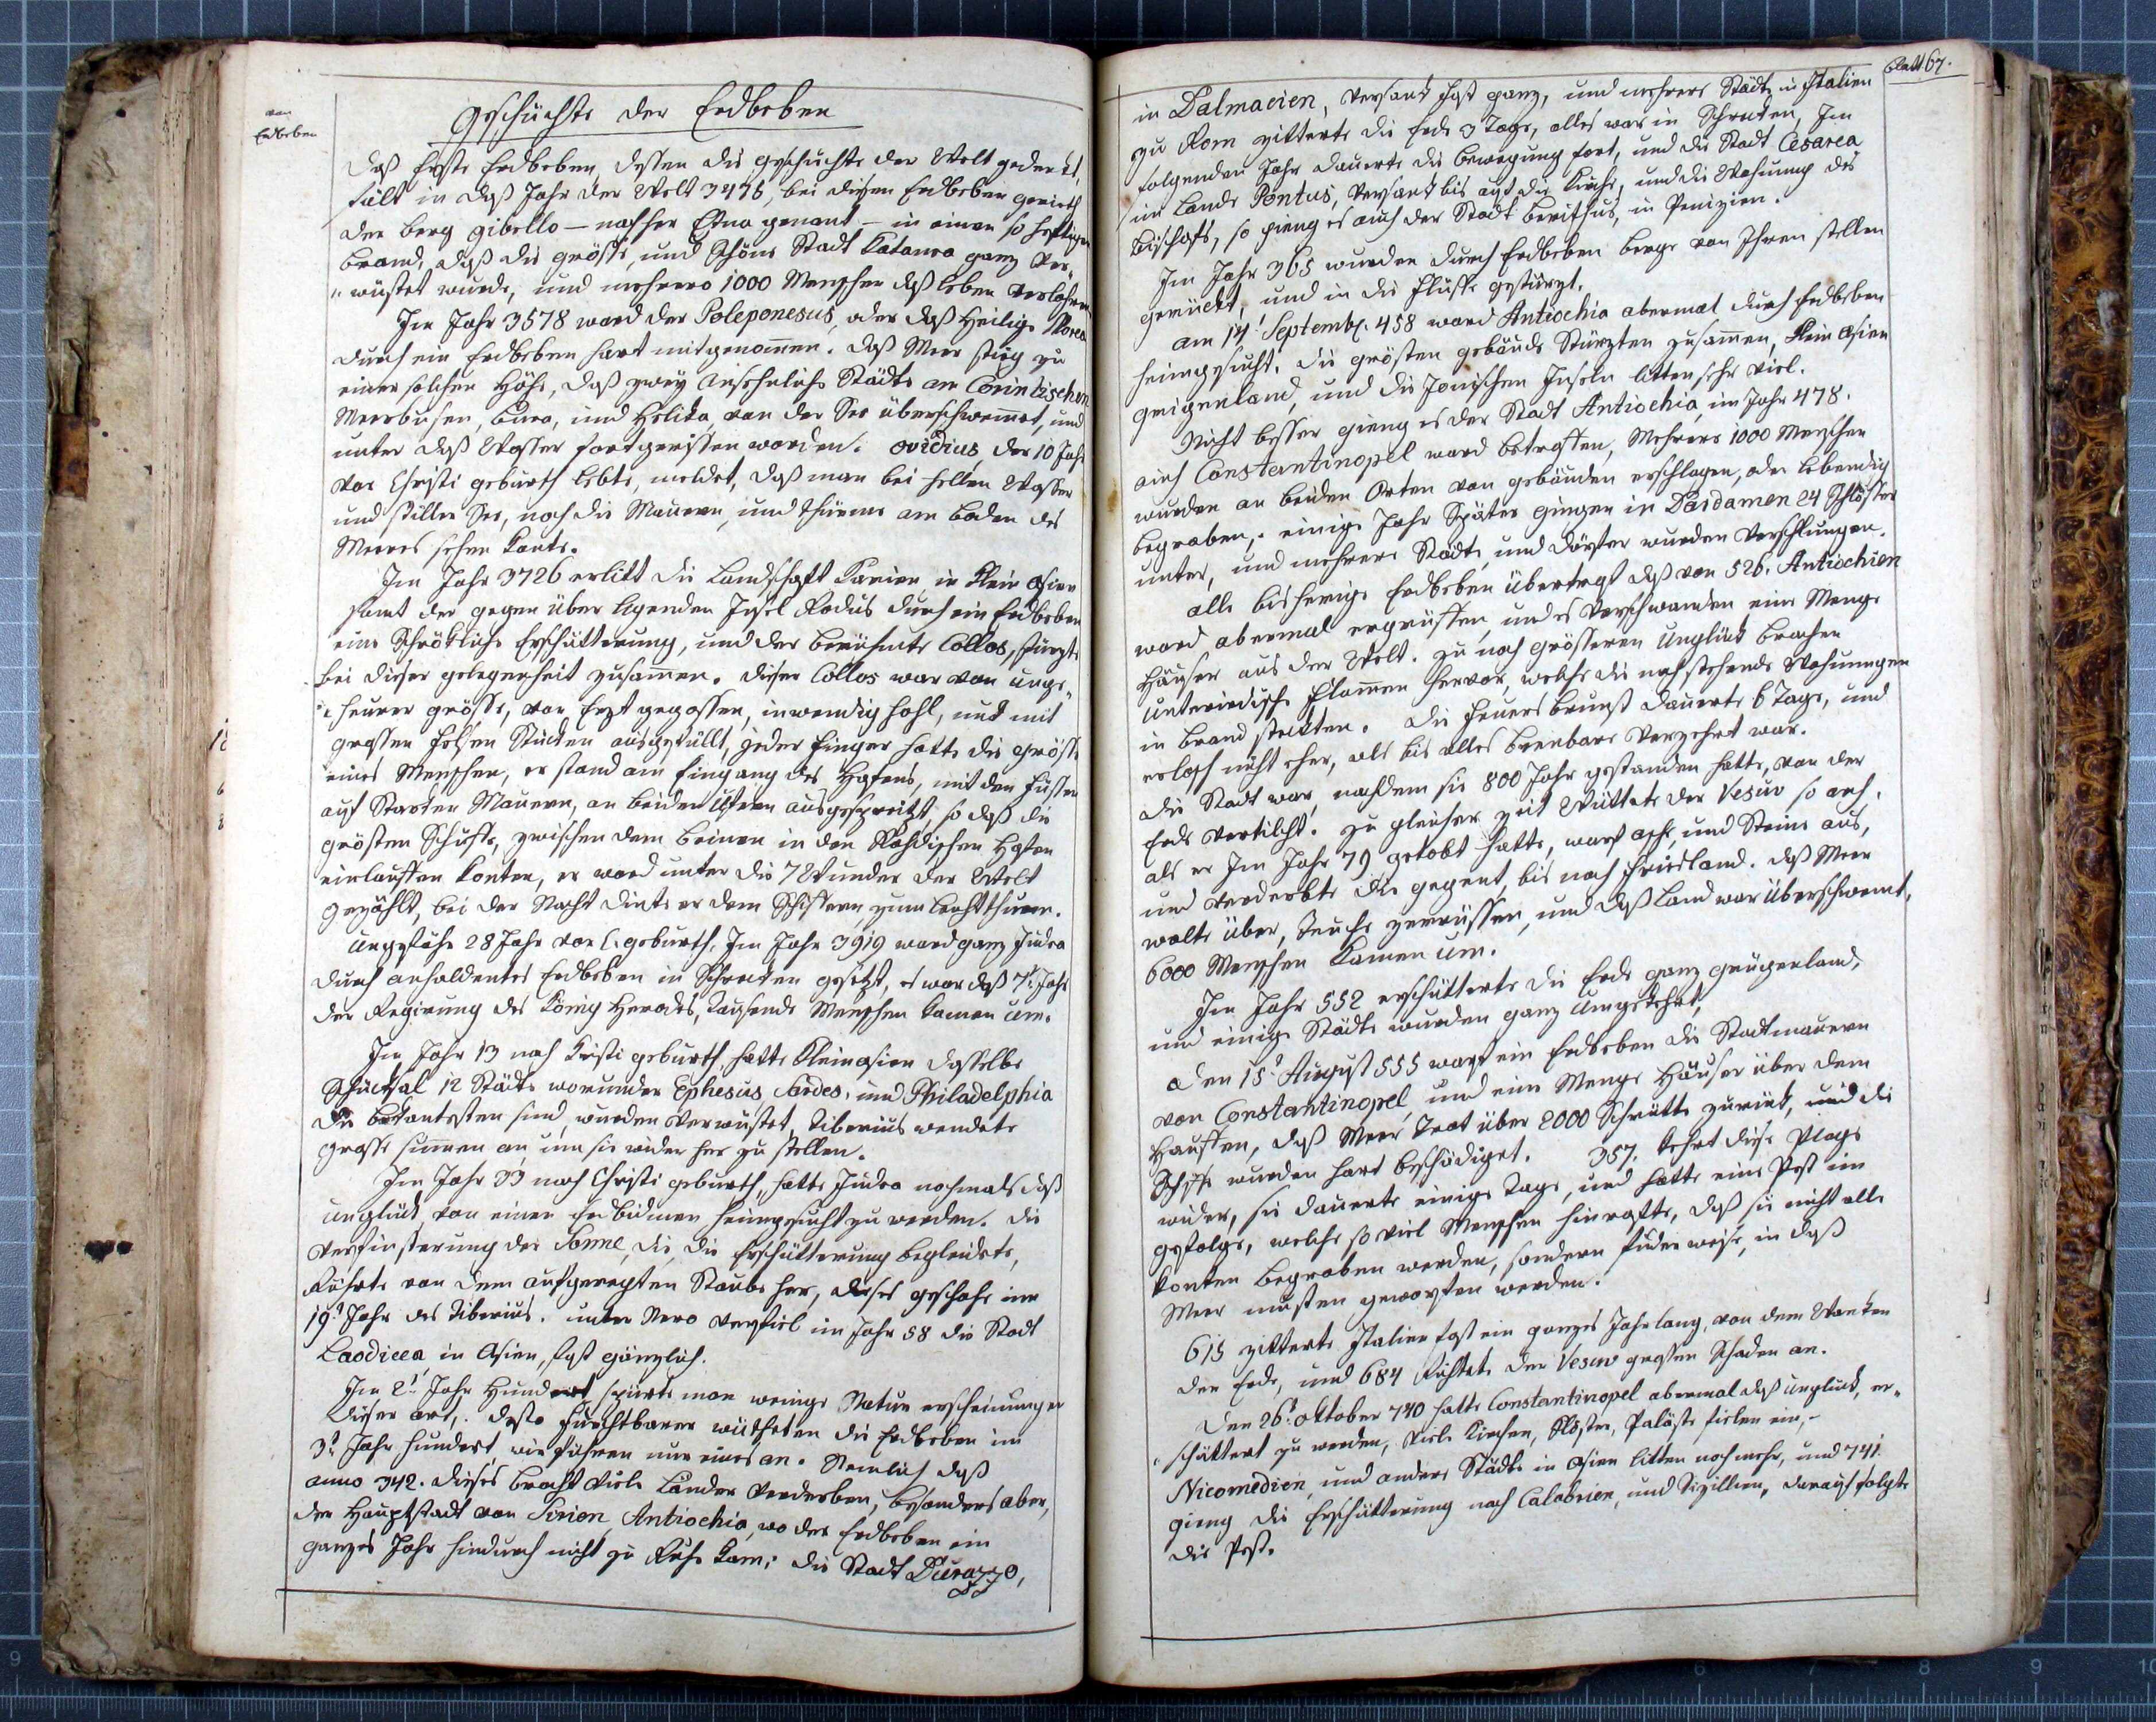 von
Erdbeben
Geschichte der Erdbeben
Daß Erste Erdbeben, dessen die geschichte der Welt gedenkt,
fält in daß Jahr der Welt 3475, bei diesem Erdbeben gerieth
der berg gibello – nachher Etna genant – in einen so heftigen
brand, daß die grösse, und Schöne Stadt Katanea ganz ver„
„wüstet wurde, und mehrere 1000 Menschen daß leben verlohren
Im Jahr 3578 ward der Poleponesus, oder daß Heilige Morea
durch ein Erdbeben hart mitgenommen. daß Meer stieg zu
einer solchen Höhe, daß zwey Ansehnliche Städte am Corintischen
Meerbusen, bura, und Helika, von der See überschwemmet, und
unter daß Wasser fortgerissen worden. ovidius, der 10 Jahr
vor Christi geburth lebte, meldet, daß man bei hellem Wasser
und stiller See, noch die Mauern, und thürme am boden des
Meeres sehen konte.
Im Jahr 3726 erlitt die Landschaft Karien in Klein Asien
samt der gegen über ligenden Insel Rodus durch ein Erdbeben
eine Schrökliche Erschütterung, und der berühmte Collos, stürzte
bei dieser gelegenheit zusammen. dieser Collos war von unge„
„heurer grösse, von Erzt gegossen, inwendig hohl, und mit
grossen felsen Stücken ausgefüllt, jeder finger hatte die grösse
eines Menschen, er stand am Eingang des Hafens, mit den füssen
auf Starken Mauern, an beiden Ufern ausgespreitzt, so daß die
grösten Schiffe, zwischen dem beinen in den Rhodischen Hafen
einlauffen konten, er ward unter die 7 Wunder der Welt
gezählt, bei der Nacht dinte er dem Schiffern zum leuchtthurm.
Ungefähr 28 Jahr vor C. geburth, Im Jahr 3919 ward ganz Judea
durch anhaldentes Erdbeben in Schrecken gesetzt, es war daß 7t Jahr
der Regierung des König Herodes, tausende Menschen kamen um.
Im Jahr 13 nach Kristi geburth, hatte Kleinasien dasselbe
Schicksal 12 Städte worunder Ephesus Sardes, und Philadelphia
die bekantesten sind, wurden verwüstet, Tiberius wendete
grosse summen an, um sie wider her zu stellen.
Im Jahr 33 nach Christi geburth, hatte Judea nochmals daß
unglück, von einen Erdbidmen heimgesucht zu werden. die
verfinsterung der Sonne, die die Erschütterung begleidete,
Rührte von dem aufgeregten Staube her, dieses geschahe im
19t Jahr des Tiberius. unter Nero verfiel im Jahr 58 die Stadt
Laodicea, in Asien, fast gänzlich.
Im 2t Jahr Hundert, spürte man wenige Natur erscheinungen
dieser art,. desto furchtbarer wütheten die Erdbeben im
3t Jahr hundert, wir führen nur eines an. Nemlich daß
anno 342. dieses bracht viele Länder verderben, besonders aber,
der Hauptstadt von Sirien, Antiochia, wo das Erdbeben ein
ganzes Jahr hindurch nicht zu Ruhe kam; die Stadt Durazzo,
12
6
8
Blatt 67.
in Dalmacien, versank fast ganz, und mehrere Städte in Italien
zu Rom zitterte die Erde 3 Tage, alles war in Schrecken, Im
folgenden Jahr dauerte die bewegung fort, und die Stadt Cesarea
im Lande Pontus, versank bis auf die Kirche, und die Wohnung des
bischofs, so gieng es auch der Stadt berithus, in Penizien.
Im Jahr 365 wurden durch Erdbeben berge von Ihren stellen
gerückt, und in die flüsse gestürzt.
am 14t Septembr. 458 ward Antiochia abermal durch Erdbeben
heimgesucht, die grösten gebäude Stürzten zusammen, Klein Asien
grigenland, und die Jonischen Inseln litten sehr viel.
Nicht besser gieng es der Stadt Antiochia, im Jahr 478.
auch Constantinopel ward betroffen, Mehrere 1000 Menschen
wurden an beiden Orten von gebäuden erschlagen, oder lebendig
begraben,. einige Jahr Später gingen in Dardamen 24 Schlösser
unter, und mehrere Städte, und dörfer wurden verschlungen.
alle bisherige Erdbeben übertrafft daß von 526. Antiochien
ward abermal ergriffen, und es verschwanden eine Menge
Häuser aus der Welt. zu noch grösseren Unglück brachen
unterirdische flammen hervor, welche die noch stehende Wohnungen
in brand steckten. die feuers brunst dauerte 6 Tage, und
erlosch nicht eher, als bis alles brenbare verzehrt war.
die Stadt war, nachdem sie 800 Jahr gestanden hatte, von der
Erde vertilcht. zu gleicher zeit Wüttete der Vesuv so arch,
als er Im Jahr 79 getobt hatte, warf asche, und Steine aus,
und verderbte die gegent, bis nach friesland. daß Meer
walte über, teuche zerrissen, und daß Land war überschwemt,
6000 Menschen kamen um.
Im Jahr 552 erschütterte die Erde ganz grügenland,
und einige Städte wurden ganz umgekehrt,
den 15t August 555 warf ein Erdbeben die Stadtmauern
von Constantinopel, und eine Menge Häuser über dem
Hauffen, daß Meer trat über 2000 Schritte zurück, und die
Schiffe wurden hart beschädiget. 357. kehrt diese Plage
wider, sie dauerte einige Tage, und hatte eine Pest im
gefolge, welche so viel Menschen hinrafte, daß sie nicht alle
konten begraben werden, sondern fuder weise, in daß
Meer musten geworffen werden.
615 zitterte Italien fast ein ganzes Jahr lang, von dem Wanken
der Erde, und 684 Richtete der Vesuv grossen Schaden an.
den 26t oktober 740 hatte Constantinopel abermal daß unglück, er„
„schüttert zu werden, viele Kirchen, Klöster, Paläste fielen ein,–
Nicomedien, und andere Städte in Asien litten noch mehr, und 741.
gieng die Erschütterung nach Calabrien, und Sizillien, darauf folgte
die Pest.